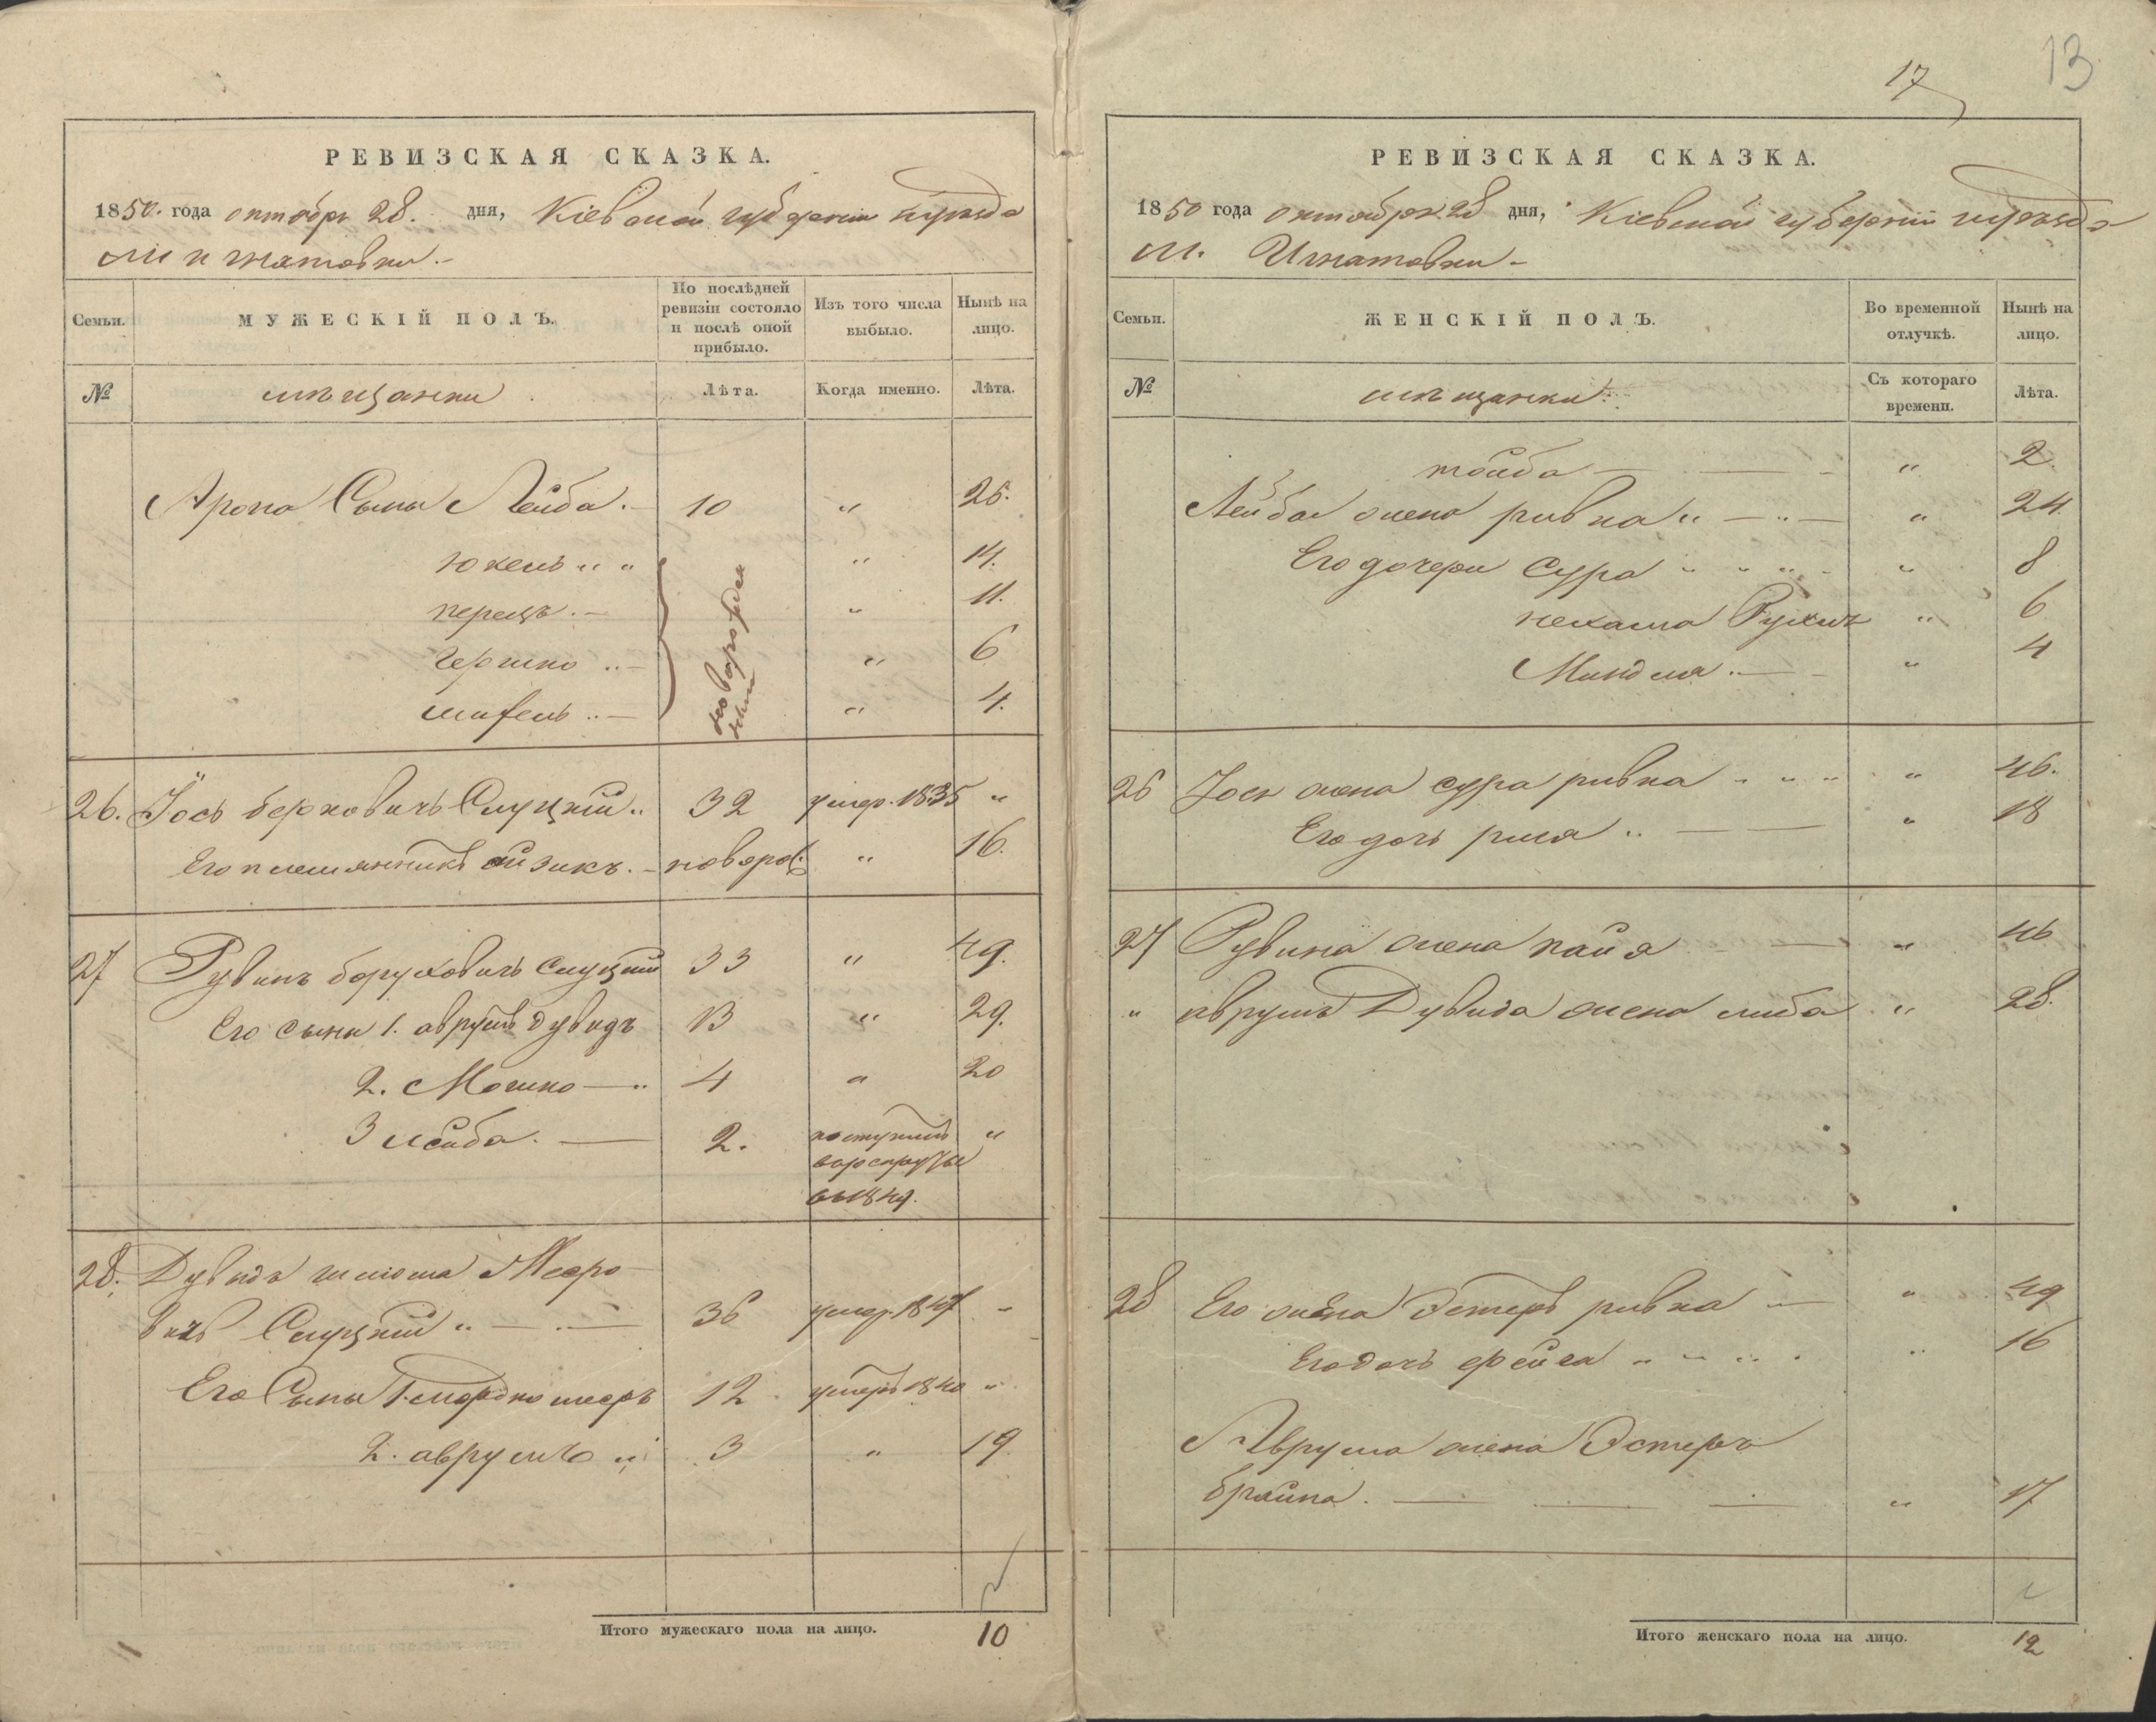 РЕВИЗСКАЯ СКАЗКА.
1850. года октября 28. дня, Кіевской губерніи и уезда
м игнатовки.-
Семьи.
МУЖЕСКІЙ ПОЛЪ.
По послѣдней ревизіи состояло и послѣ оной прибыло.
Изъ того числа выбыло.
Нынѣ на лицо.
№
мѣщанки
Лѣта.
Когда именно.
Лѣта.
Арона Сыны Лейба .- 10 " 25.
юкель " " " 14.
перецъ .- " 11.
гершко ..- " 6
..- " 4.
новорожден
ные
26. Іось берковичъ Слуцкій .. 32 умер. 1835 "
Его племянникъ айзикъ. - новорож " 16.
27 Рувинъ боруховичъ слуцкій 33 " 49.
Его сыны 1. аврумъ дувидъ 13 " 29.
2. Мошко — .. 4 " 20
3 лейба. — 2. поступилъ "
в
въ 1849.
28. Дувидъ шлиома Меро-
вичъ Слуцкій .. — .. — 36 умер. 1847 -
Его Сыны 1. мордко мееръ 12 умеръ 1840 "
2. аврумъ .. 3 " 19.
Итого мужескаго пола на лицо. 10
13
17
РЕВИЗСКАЯ СКАЗКА.
1850 года октября 28 дня, Кіевской губерніи и уезда
м. Игнатовки-
Семьи.
ЖЕНСКІЙ ПОЛЪ.
Во временной отлучкѣ.
Нынѣ на лицо.
№
мѣщанки
Съ котораго времени.
Лѣта.
тойба — — " 2.
Лейба жена ривка " — " — " 24.
Его дочери Сура " " " " 8
нехама Рухля " 6
Миндля .. — " 4
26 Іося жена сура ривка " " " " 46.
Его дочь рися .. — — " 18
27 Рувина жена пайя — " 46
" аврумъ Дувида жена либа " 28.
28 Его жена Эстеръ ривка — " 49
Его дочь фейга " " " " 16
Аврума жена Эстеръ
брайна. — — — " 17
Итого женскаго пола на лицо. 12